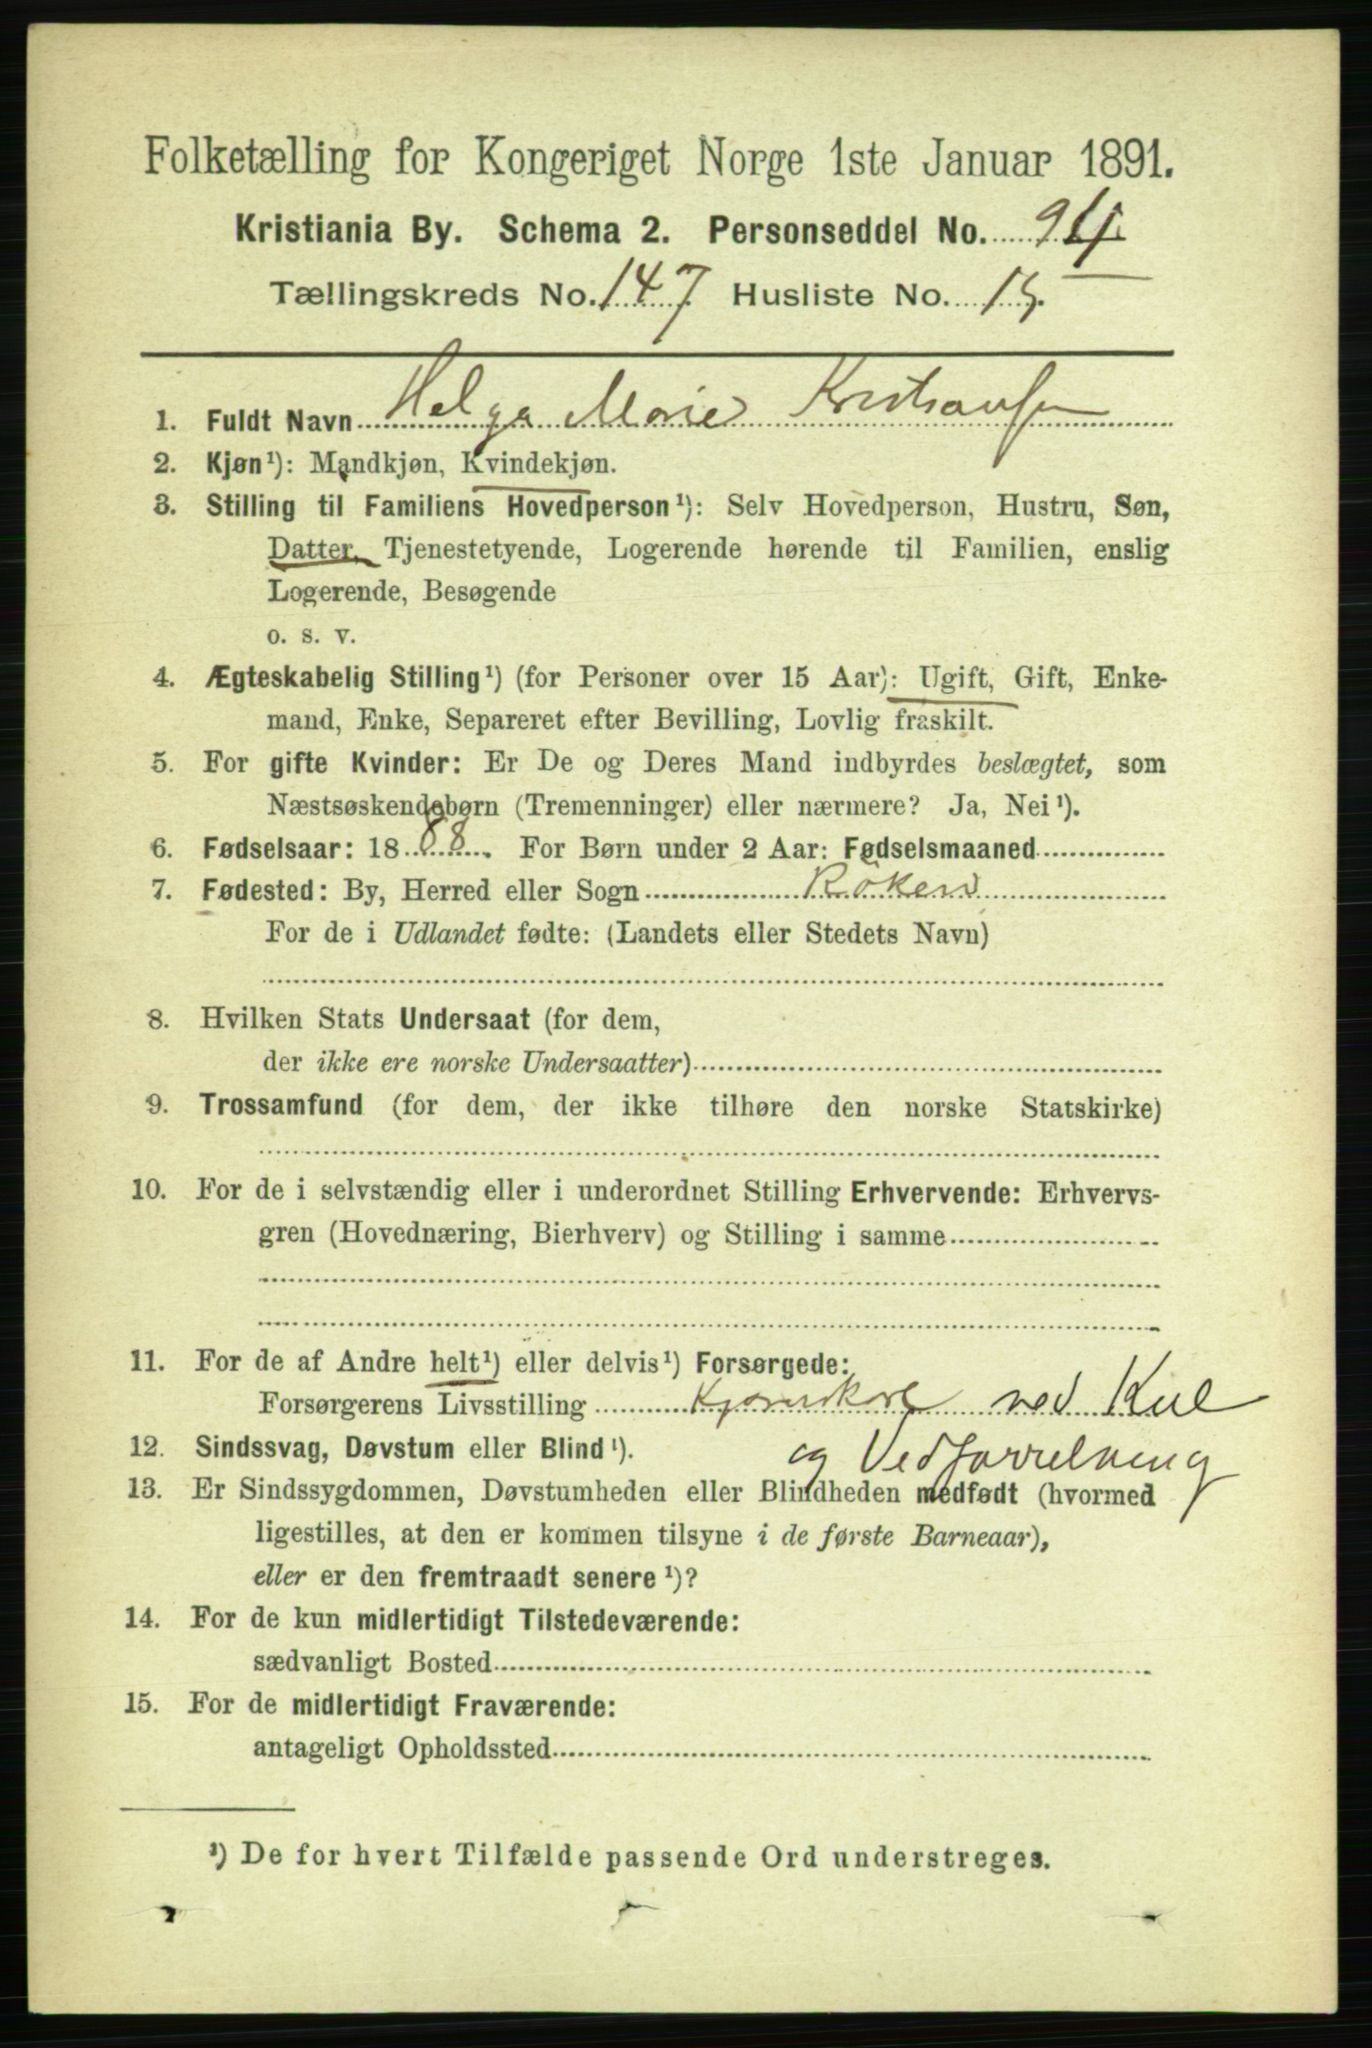 Folketælling for Kongeriget Norge 1ste Januar 1891.
Kristiania By. Schema 2. Personseddel No. 94
Tællingskreds No. 147 Husliste No. 15.
1. Fuldt Navn Helga Marie Kristiansen
2. Kjøn¹): Mandkjøn, Kvindekjøn.
3. Stilling til Familiens Hovedperson¹): Selv Hovedperson, Hustru, Søn,
Datter, Tjenestetyende, Logerende hørende til Familien, enslig
Logerende, Besøgende
o. s. v.
4. Ægteskabelig Stilling¹) (for Personer over 15 Aar): Ugift, Gift, Enke-
mand, Enke, Separeret efter Bevilling, Lovlig fraskilt.
5. For gifte Kvinder: Er De og Deres Mand indbyrdes beslægtet, som
Næstsøskendebørn (Tremenninger) eller nærmere? Ja, Nei¹).
6. Fødselsaar: 1888. For Børn under 2 Aar: Fødselsmaaned
7. Fødested: By, Herred eller Sogn Röken
For de i Udlandet fødte: (Landets eller Stedets Navn)
8. Hvilken Stats Undersaat (for dem,
der ikke ere norske Undersaatter)
9. Trossamfund (for dem, der ikke tilhøre den norske Statskirke)
10. For de i selvstændig eller i underordnet Stilling Erhvervende: Erhvervs-
gren (Hovednæring, Bierhverv) og Stilling i samme
11. For de af Andre helt¹) eller delvis¹) Forsørgede:
Forsørgerens Livsstilling ved Kul
12. Sindssvag, Døvstum eller Blind¹). og Vedforretning
13. Er Sindssygdommen, Døvstumheden eller Blindheden medfødt (hvormed
ligestilles, at den er kommen tilsyne i de første Barneaar),
eller er den fremtraadt senere¹)?
14. For de kun midlertidigt Tilstedeværende:
sædvanligt Bosted
15. For de midlertidigt Fraværende:
antageligt Opholdssted
¹) De for hvert Tilfælde passende Ord understreges.